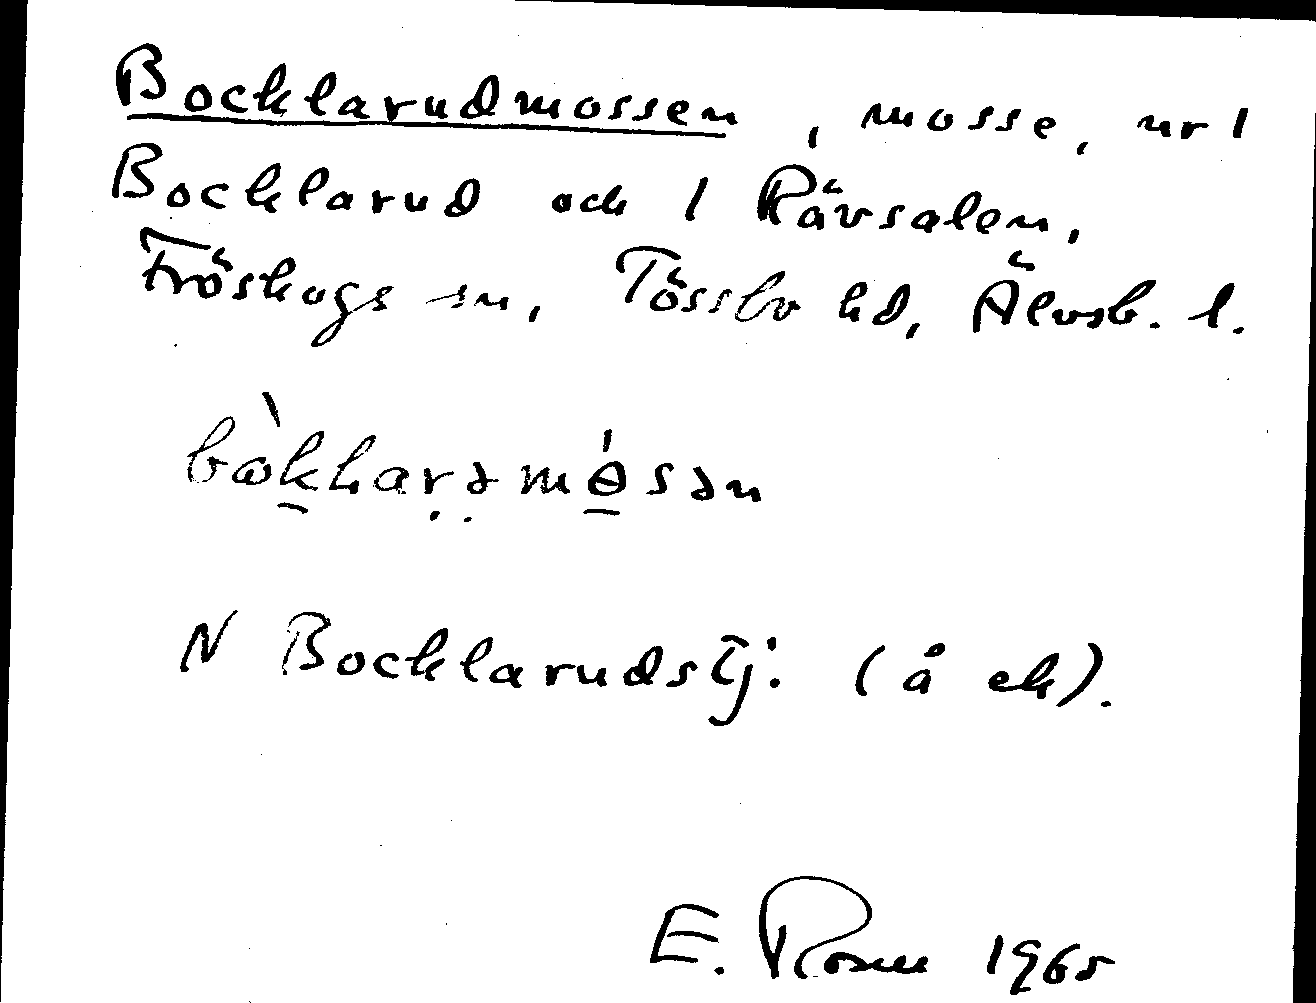 Bocklarudmossen, mosse, nr 1
Bocklarud och 1 Rävsalen,
Fröskogs sn, Tössbo hd, Älvsb. l.
N Bocklarudstj. (å ek).
E. Rosell 1965